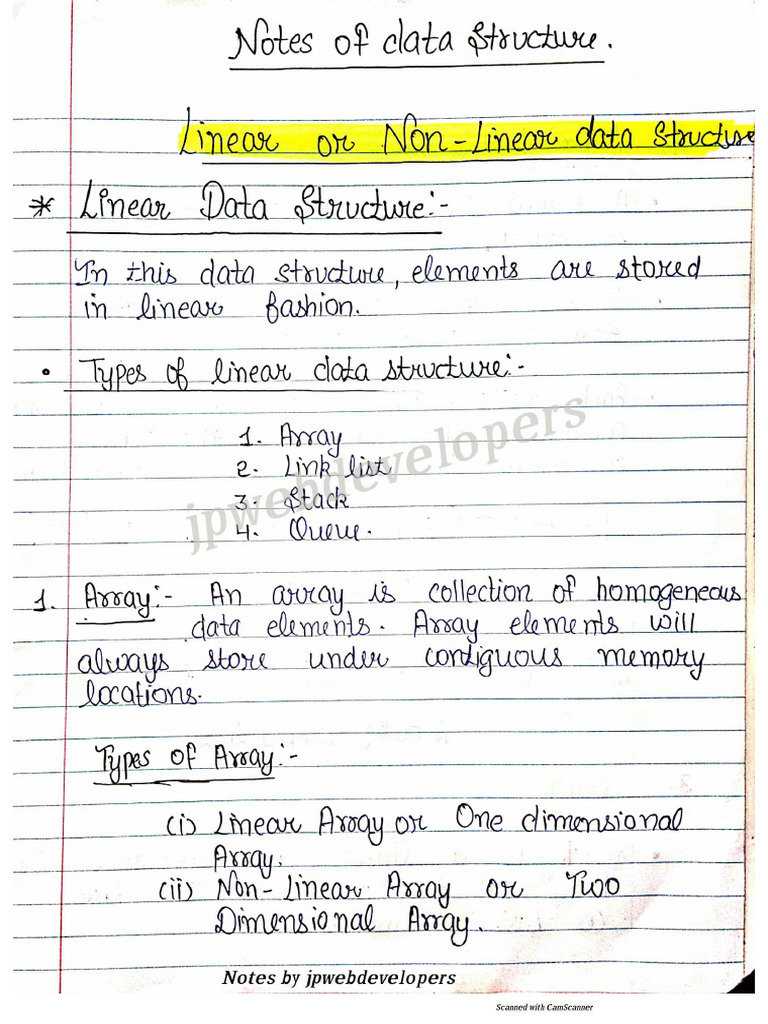 Notes of data structure.
Linear or Non-Linear data structure
* Linear Data Structure:-
In this data structure, elements are stored
in linear fashion.
• Types of linear data structure:-
1. Array
2. Link list
3. Stack
4. Queue.
jpwebdevelopers
1. Array:- An array is collection of homogeneous
data elements. Array elements will
always store under contiguous memory
locations.
Types of Array:-
(i) Linear Array or One dimensional
Array.
(ii) Non-Linear Array or Two
Dimensional Array.
Notes by jpwebdevelopers
Scanned with CamScanner